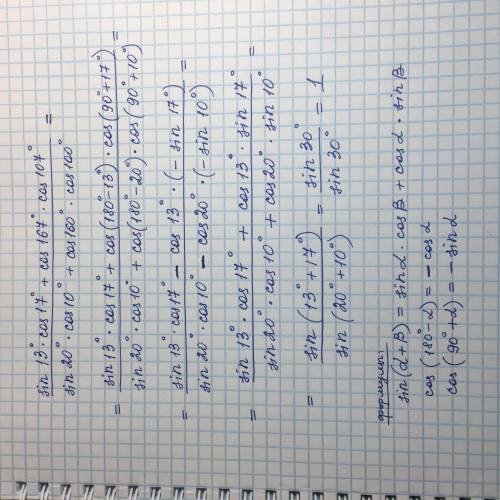 sin 13° · cos 17° + cos 167° · cos 107°
sin 20° · cos 10° + cos 160° · cos 100° =
= sin 13° · cos 17° + cos (180° - 13°) · cos (90° + 17°)
sin 20° · cos 10° + cos (180° - 20°) · cos (90° + 10°) =
= sin 13° · cos 17° - cos 13° · (- sin 17°)
sin 20° · cos 10° - cos 20° · (- sin 10°) =
= sin 13° · cos 17° + cos 13° · sin 17°
sin 20° · cos 10° + cos 20° · sin 10° =
= sin (13° + 17°)
sin (20° + 10°) = sin 30°
sin 30° = 1
формулы:
sin (α + β) = sin α · cos β + cos α · sin β
cos (180° - α) = - cos α
cos (90° + α) = - sin α